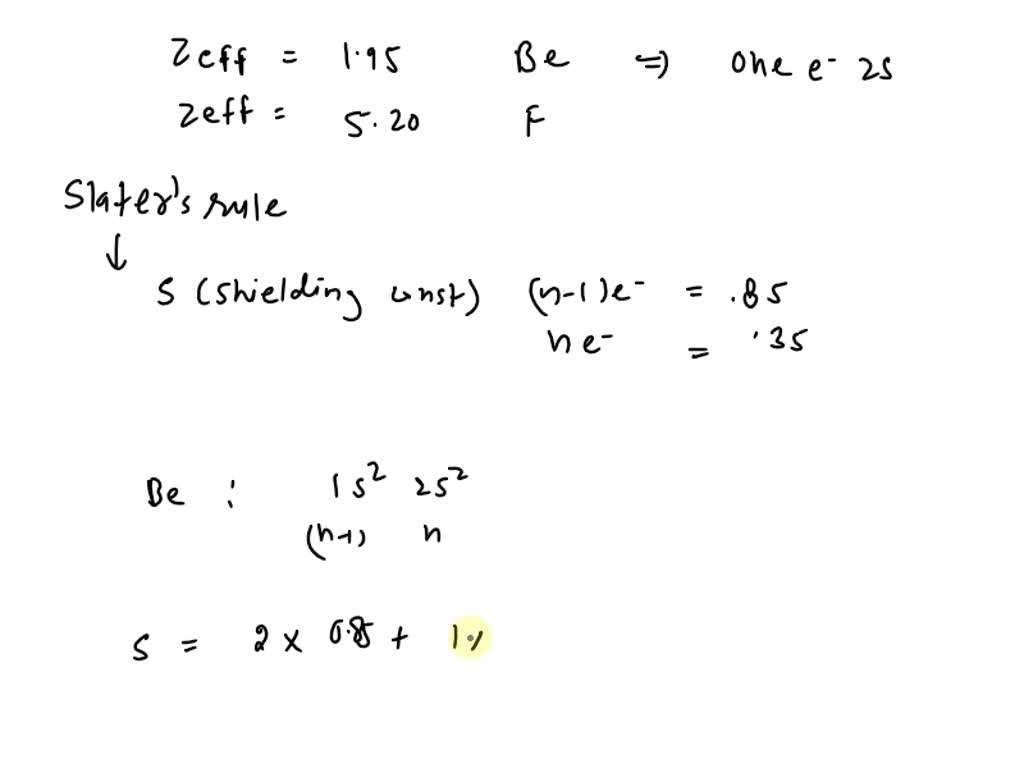 Zeff = 1.95 Be ⇒ One e⁻ 2s
Zeff = 5.20 F
Slater's rule
↓
S (Shielding const) (n-1)e⁻ = .85
ne⁻ = .35
Be : 1s² 2s²
(n-1) n
S = 2 × 0.85 + 1